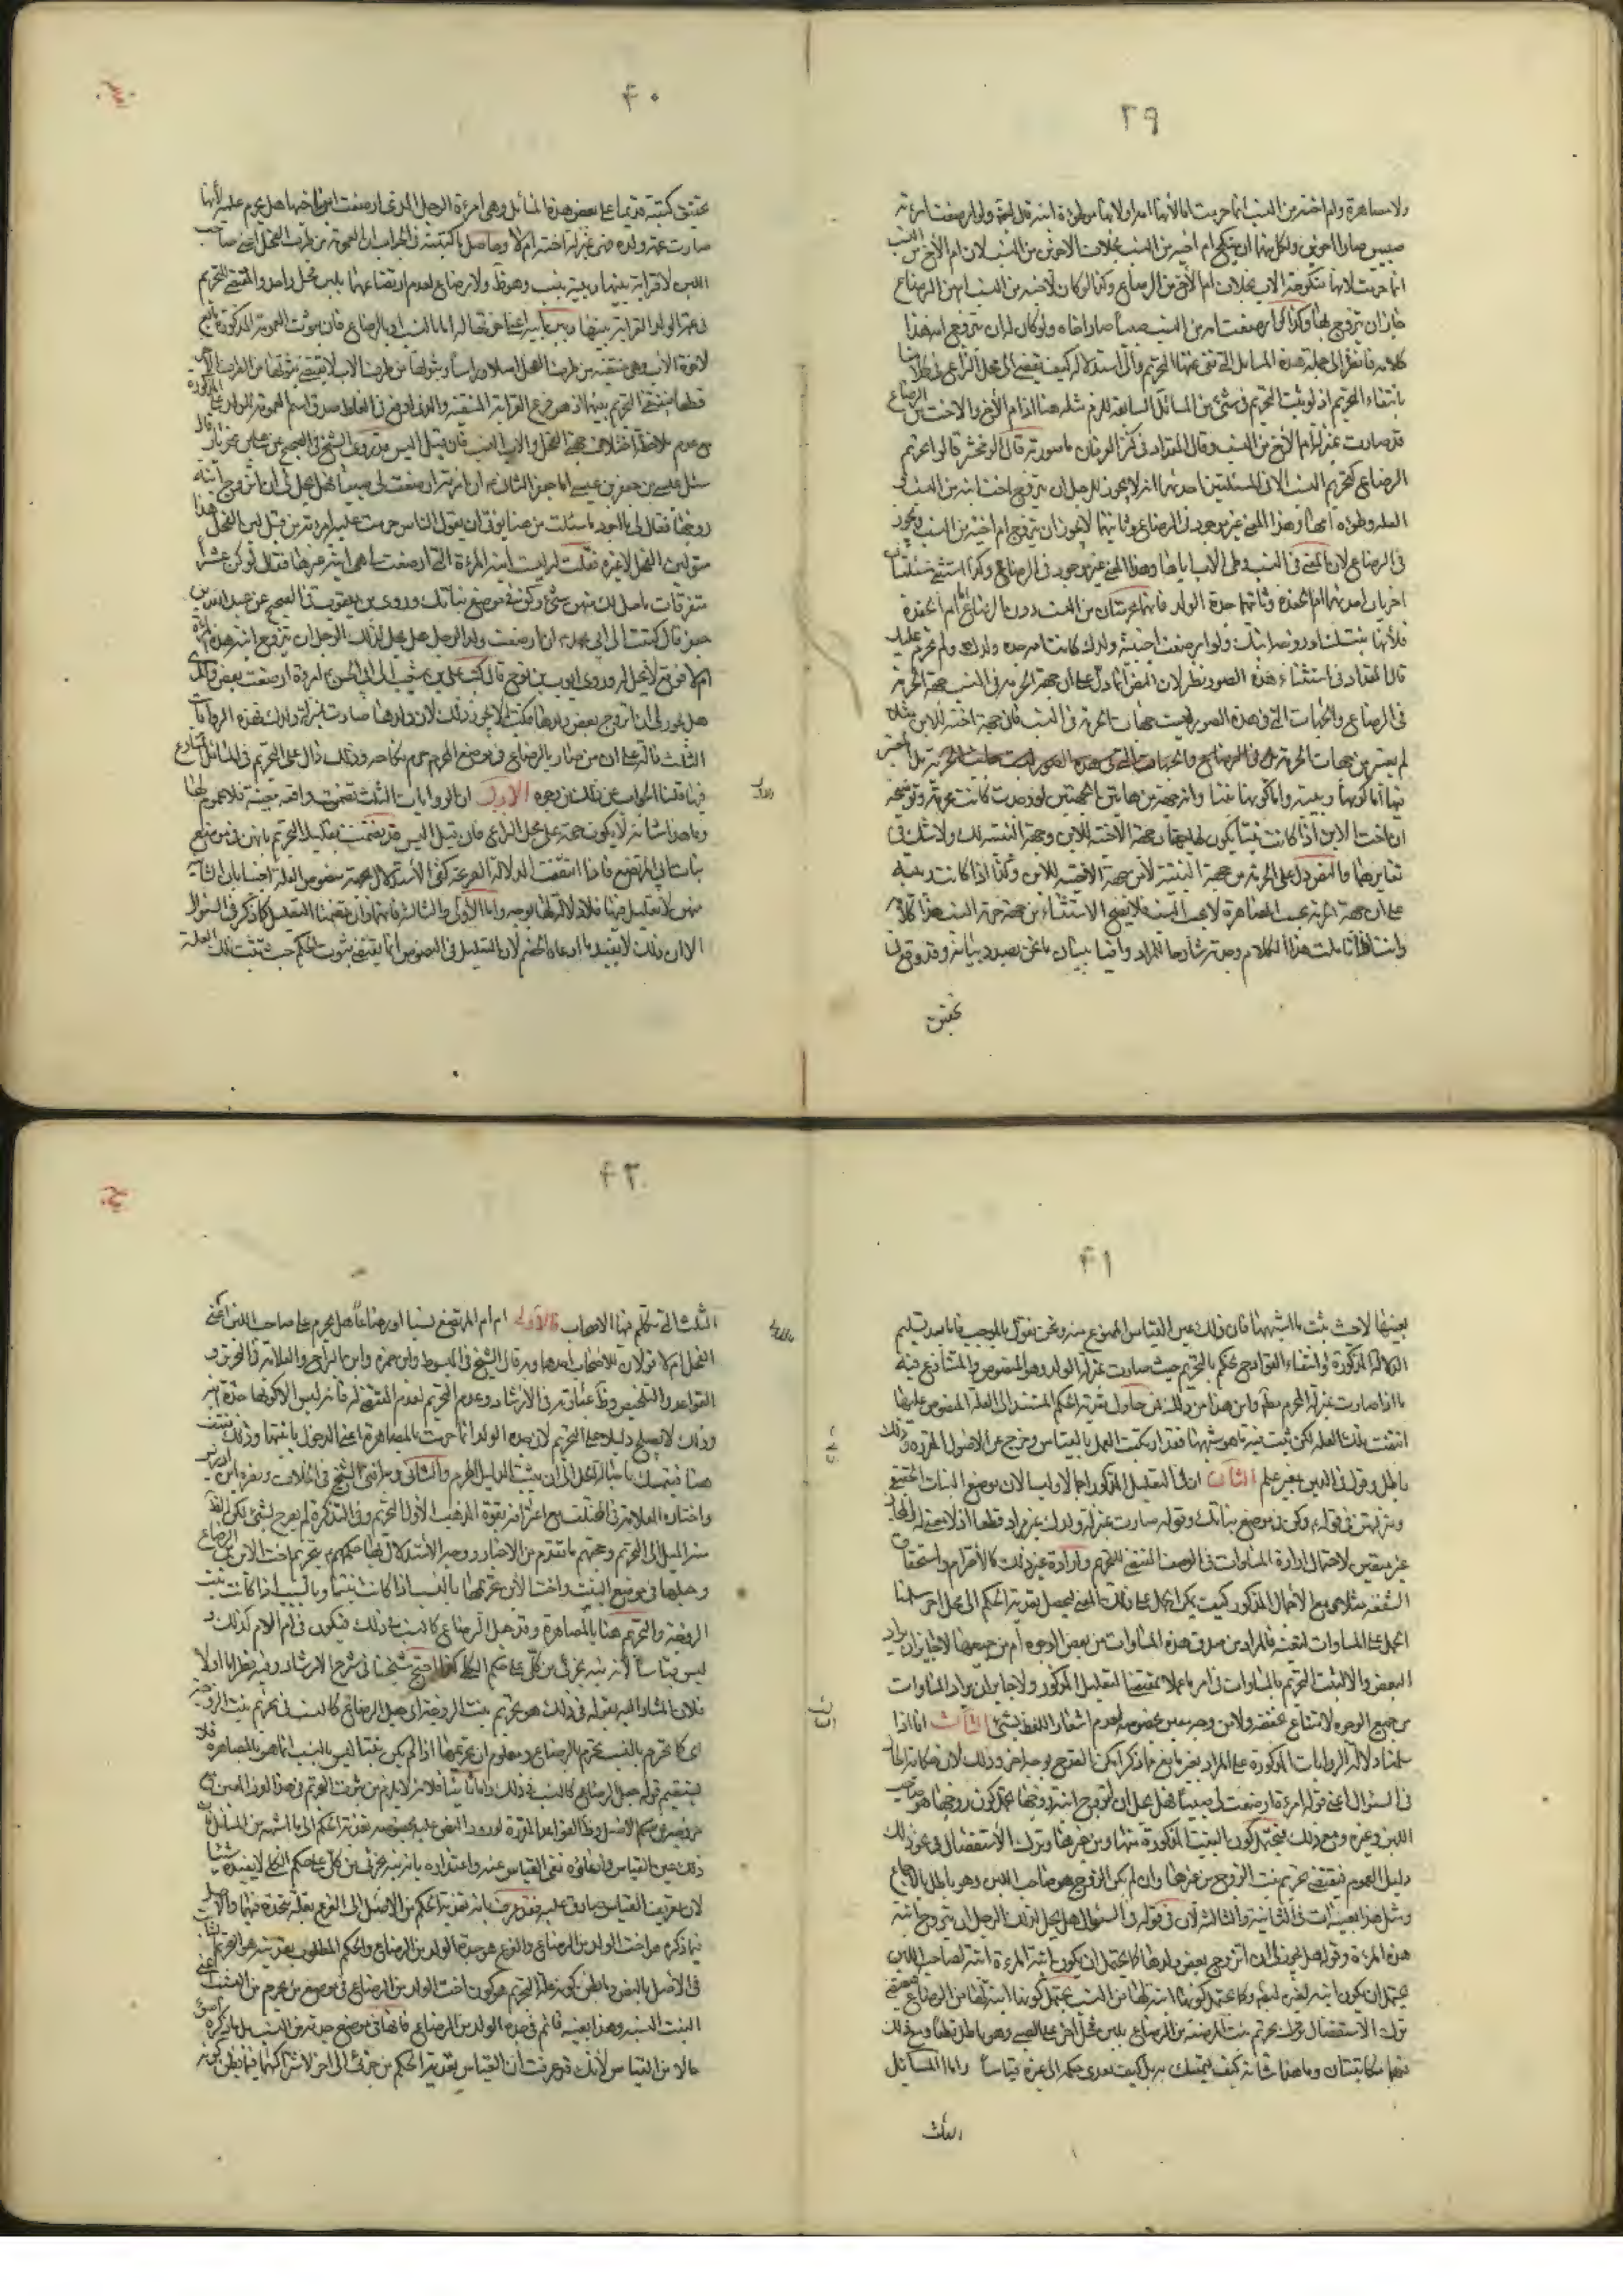 ٣٩
ولا مصاهرة وام اخته من النسب انما حرمت اما لانها امه او لانها موطوءة ابيه قال ولو ارضعت امرئة
صبيين صارا اخوين ولكل منهما ان ينكح ام اخيه من النسب بخلاف الاخوين من النسب لان ام الأخ من النسب
انما حرمت لانها منكوحة الاب بخلاف ام الأخ من الرضاع وكذا لو كان لاخيه من النسب ام من الرضاع
جاز ان يتزوج بها وكذا لو ارضعت امه من النسب صبيا صار اخاه ولو كان له ان يتزوج امه هذا
كلامه فانظر الى جملة هذه المسائل التي نفى عنها التحريم والى استدلاله كيف يقضي الى محل النزاع
بانتفاء التحريم اذ لو ثبت التحريم في شيء من المسائل السابقة للزم مثله هنا اذ ام الأخ والاخت من الرضاع
قد صارت بمنزلة ام الأخ من النسب وقال المقداد في كنز العرفان ما صورته قال الزمخشري قالوا تحريم
الرضاع كتحريم النسب الا في مسئلتين احدهما انه لا يجوز للرجل ان يتزوج اخت ابنه من النسب
العلة وطؤه امها وهذا المعنى غير موجود في الرضاع وثانيتهما لا يجوز ان يتزوج ام اخيه من النسب ويجوز
في الرضاع لان المعنى في النسب وطي الاب اياها وهذا المعنى غير موجود في الرضاع وكذا استثني مسئلتان
اخريان احدهما ام الحفدة وثانيتهما جدة الولد فانهما محرمتان من النسب دون الرضاع اما ام الحفدة
فلأنها بنتك او زوجة ابنك ولو ارضعت اجنبية ولدك كانت امه جدة ولدك ولم تحرم عليك
قال المقداد في استثناء هذه الصور نظر لان النص انما دل على ان جهة الحرمة في النسب جهة الحرمة
في الرضاع والجهات التي في هذه الصور ليست جهات الحرمة في النسب فان جهة اخته للابن مثلا
لم يعتبر من جهات الحرمة
فيها اما كونها ربيبة واما كونها بنتا
ان اخت الابن اذا كانت بنتا يكون لها جهتان جهة الاختية للابن وجهة البنتية لك ولا شك في
تغايرهما والنص دل على الحرمة من جهة البنتية لا من جهة الاختية للابن وكذا اذا كانت ربيبة
على ان جهة الحرمة بسبب المصاهرة لا بسبب النسب فلا يصح الاستثناء من جهة حرمة النسب هذا كلامه
وانت اذا تأملت هذا الكلام وجدته شاهدا للمراد وافيا ببيان ما نحن بصدد بيانه وقد وقع لنا
تحقيق
٤٠
تحقيق كتبته قديما على بعض هذه المسائل وهي امرءة الرجل اذا ارضعت ابن اخيها هل تحرم عليه لأنها
صارت عمة ولده فهي بمنزلة اخته ام لا وحاصل ما كتبته في الجواب ان العمومة من طرف الفحل اعني صاحب
اللبن لا قرابة بينهما وبينه بنسب وهو ظ ولا رضاع لعدم ارتضاعهما بلبن فحل واحد والمقتضي للتحريم
في عمة الولد القرابة بينها وبين ابيه اعني اختها له اما بالنسب او بالرضاع فان ثبوت العمومة المذكورة تابع
لاخوة الاب وهي منتفية من طرف الفحل اصلا وراسا وثبوتها من طرف الاب لا يقتضي ثبوتها من الطرف الاخر
قطعا فينتفي التحريم بينها اذ هو فرع القرابة المنتفية والذي اوقع في الغلط صدق اسم العمومة للولد على المذكورة
مع عدم ملاحظة اختلاف جهة الفحل والاب النسب فان قيل اليس قد روى الشيخ في الصحيح عن علي بن مهزيار قال
سئل عيسى بن جعفر بن عيسى ابا جعفر الثاني ع ان امرأة ارضعت لي صبيا فهل يحل لي ان اتزوج ابنة
زوجها فقال لي ما اجود ما سئلت من هنا يؤتى ان يقول الناس حرمت عليه امرءته من قبل لبن الفحل هذا
هو لبن الفحل لا غيره فقلت له ليست ابنة المرءة التي ارضعت لي هي ابنة غيرها فقال لو كن عشرا
متفرقات ما حل لك منهن شيء وكن في موضع بناتك وروى بن يعقوب في الصحيح عن عبد الله بن
جعفر قال كتبت الى ابي محمد ع ان امرءة ارضعت ولد الرجل هل يحل لذلك الرجل ان يتزوج ابنة هذه المرئة
ام لا فوقع لا تحل له وروى ايوب بن نوح قال كتب علي بن شعيب الى ابي الحسن ع امرءة ارضعت بعض ولدي
هل يجوز لي ان اتزوج بعض ولدها فكتب لا يجوز ذلك لان ولدها صارت بمنزلة ولدك فهذه الروايات
الثلث دالة على ان من صار بالرضاع في موضع المحرم حرم نكاحه وذلك دال على التحريم في المسائل المتنازع
فيها قلنا الجواب عن ذلك من وجوه الاول ان الروايات الثلث تضمنت واقعة معينة فلا عموم لها
وما هذا شانه لا يكون حجة على محل النزاع فان قيل اليس قد تضمنت تعليل التحريم بانهن في موضع
بنات ابي المرتضع فاذا انتفت الدلالة الفرعية كفى الاستدلال بجهة منصوص العلة اجبنا بان الثانية
منهن لا تعليل فيها فلا دلالة لها بوجه واما الأولى والثالثة فانهما وان تضمنتا التعليل كما ذكر في السؤال
الا ان ذلك لا يفيد ما ادعاه الخصم لان التعليل في النصوص انما يقتضي ثبوت الحكم حيث تثبت تلك العلة
٤١
بعينها لا حيث يثبت ما اشبهها فان ذلك عين القياس الممنوع منه ونحن نقول بالموجب فانا بعد تسليم
الدلالة المذكورة وانتفاء القوادح نحكم بالتحريم حيث صارت بمنزلة الولد وهو المنصوص والمتنازع فيه
ما اذا صارت بمنزلة المحرم مطلقا واين هذا من ذلك فمن حاول تعدية الحكم المستند الى العلة المنصوص عليها
انتفت تلك العلة لكن ثبت فيه ما هو شبهها فقد ارتكب العمل بالقياس وخرج عن الاصول المقررة وذلك
باطل وقول في الدين بغير علم الثاني ان في التعليل المذكور اجمالا والتباسا لان موضع البنات الحقيقي
ومنزلتهن في قوله ع وكن في موضع بناتك وقوله صارت بمنزلة ولدك غير مراد قطعا اذ لا
غير مقدس لاحتمال ارادة المساوات في الوصف المقتضي للتحريم وارادة غير ذلك كالاحترام واستحقاق
الشفقة مثلا ومع الاحتمال المذكور كيف يمكن الحمل على ذلك المعنى ليحصل تعدية الحكم الى محل اخر سلمنا
الحمل على المساوات لنفسه فالمراد من صدق هذه المساوات من بعض الوجوه أم من جميعها لا جائز ان يراد
البعض والا لثبت التحريم بالمساوات في امر ما عملا بمقتضى التعليل المذكور ولا جائز ان يراد المساوات
من جميع الوجوه لامتناع تحققه ولا من وجه معين بخصوصه لعدم اشعار اللفظ بشيء الثالث انا اذا
سلمنا دلالة الروايات المذكورة على المراد بغير ما يقع فيما ذكر امكن القدح بوجه اخر وذلك لان
في السؤال اعني قوله امرءة ارضعت لي صبيا فهل يحل ان اتزوج ابنة زوجها يحتمل كون زوجها هو صاحب
اللبن وغيره ومع ذلك فيحتمل كون البنت المذكورة منها ومن غيرها وترك الأستفصال في نحو ذلك
دليل العموم فيقتضي تحريم بنت الزوج من غيرها وان لم يكن الزوج هو صاحب اللبن وهو باطل بالاجماع
ومثل هذا بعينه ات في الثانية والثالثة لان في قوله في السؤال هل يحل لذلك الرجل ان يتزوج ابنة
هذه المرءة وقوله هل يجوز لي ان اتزوج بعض ولدها كما يحتمل ان يكون ابنة المرءة ابنة لصاحب اللبن
يحتمل ان يكون ابنة لغيره وكما يحتمل كونها ابنة لها من النسب يحتمل كونها ابنتها من الرضاع فيقتضي
ترك الاستفصال تحريم بنت المرضعة من الرضاع بلبن فحل اخر على الصبي وهو باطل قطعا ومع ذلك
فهما مكاتبتان وما هذا شانه كيف يتمسك به بل كيف يعدى حكمه الى غيره قياسا واما المسائل
الثلث
٤٢
الثلث التي تكلم فيها الاصحاب فالأولى ام ام المرتضع نسبا او رضاعا هل تحرم على صاحب اللبن اعني
الفحل ام لا قولان للاصحاب احدهما وبه قال الشيخ في المبسوط وابن حمزة وابن البراج والعلامة في التحرير و
القواعد والتلخيص وظ عبارته في الارشاد وعدم التحريم لعدم المقتضي له فانه ليس الا كونها جدة ابنه
وذلك لا يصلح دليلا على التحريم لان جدة الولد انما حرمت بالمصاهرة اعني الدخول بابنتها وذلك منتف
هنا فيتمسك باصالة الحل الى ان يثبت الدليل المحرم والثاني وبه افتى الشيخ في الخلاف ونصره ابن ادريس
واختاره العلامة في المختلف مع اعترافه بقوة المذهب الأول المشهور وفي التذكرة لم يصرح بشيء لكن
منه الميل الى التحريم وحجتهم ما تقدم من الاخبار ووجه الأستدلال بها حكمهم ع بتحريم اخت الابن من الرضاع
وجعلها في موضع البنت واخت الأبن تحريمها بالنسب اذا كانت بنتا وبالسبب اذا كانت بنت
الزوجة والتحريم هنا بالمصاهرة وقد جعل الرضاع كالنسب في ذلك فيكون في ام الام كذلك و
ليس قياسا لأنه تنبيه بجزئي من كلي على حكم الكلي كذا احتج شيخنا في شرح الارشاد وفيه نظر اما اولا
فلان المشار اليه بقوله في ذلك هو تحريم بنت الزوجة اي جعل الرضاع كالنسب في تحريم بنت الزوجة
اي كما تحرم بالنسب تحرم بالرضاع ومعلوم ان تحريمها اذا لم يكن بنتا ليس بالنسب انما هو بالمصاهرة فلا
يستقيم قوله جعل الرضاع كالنسب في ذلك واما ثانيا فلانه لا يلزم من ثبوت التحريم في هذا الفرد المعين
ذلك عين القياس وادعاؤه نفي القياس عنه واعتذاره بانه تنبيه بجزئي من كلي على حكم الكلي لا يفيده شيئا
لان تعريف القياس صادق عليه فقد عرف بانه تعدية الحكم من الاصل الى الفرع بعلة متحدة فيهما والاصل
فيما ذكره هو اخت الولد من الرضاع والفرع هو جدة الولد من الرضاع والحكم المطلوب تعديته هو التحريم الثابت
في الاصل بالنص وما يظن كونه علة التحريم هو كون اخت الولد من الرضاع في موضع من يحرم من النسب اعني
البنت النسبية وهذا بعينه قائم في جدة الولد من الرضاع فانها في موضع جدته من النسب بل ما ذكره اسوئ
حالا من القياس لأنك قد عرفت ان القياس تعدية الحكم من جزئي الى اخر لاشتراكهما فيما يظن كونه